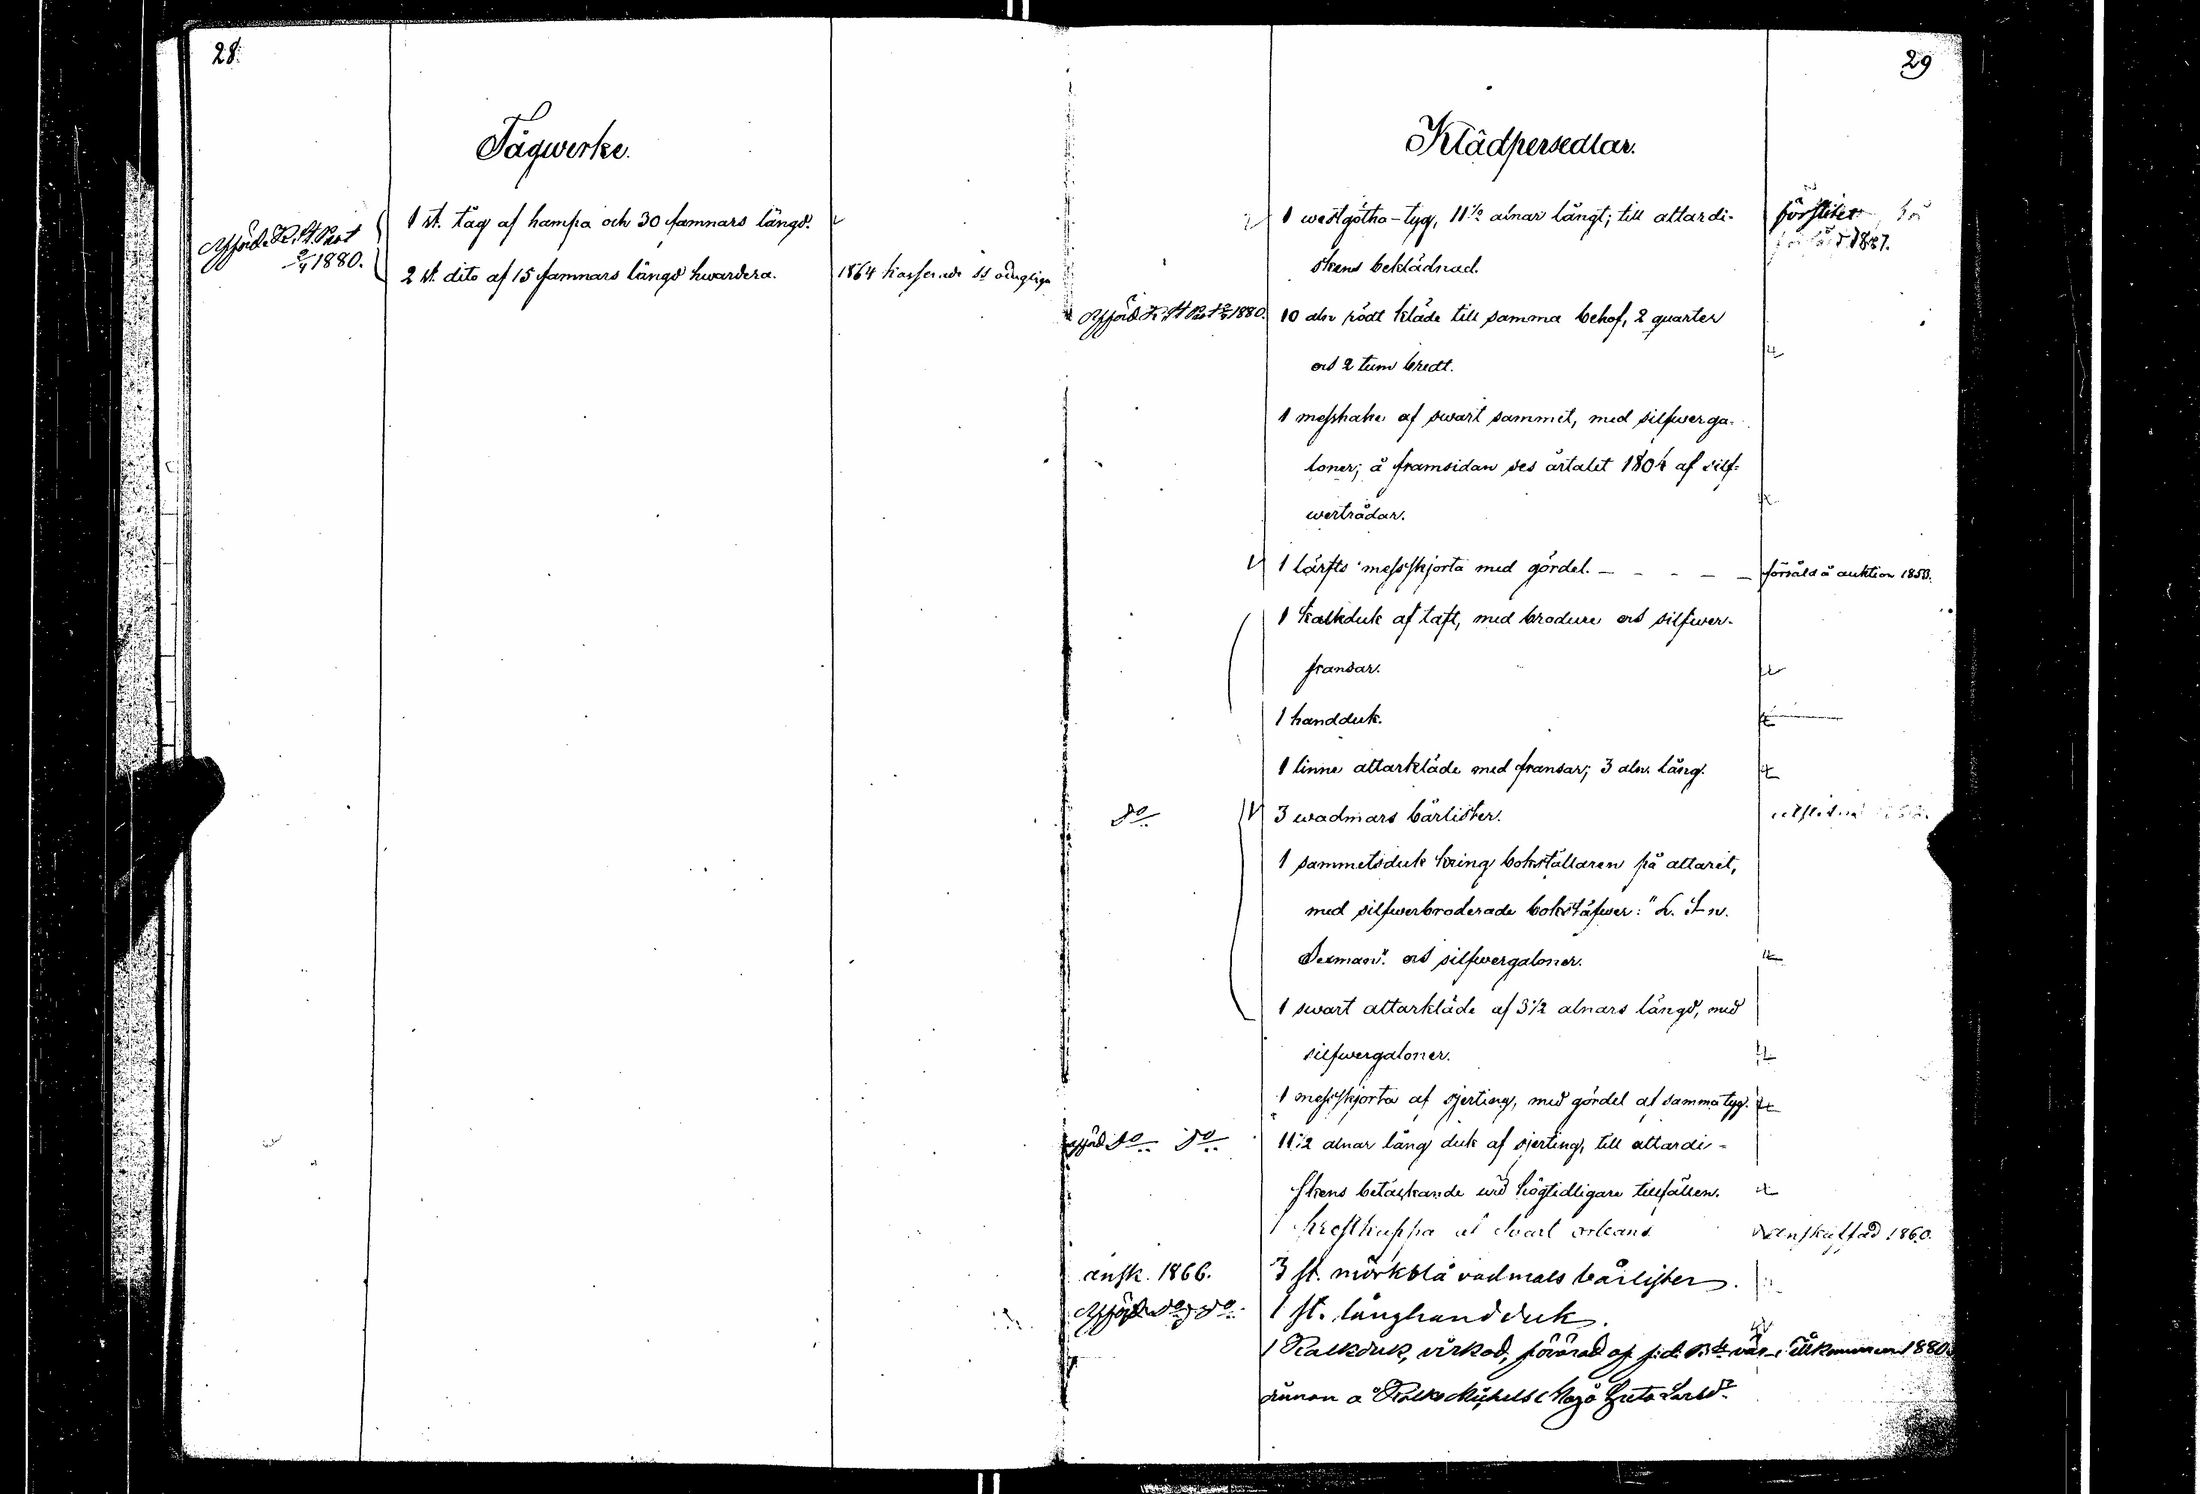 28.
Tågwerke.
1 st. tåg af hampa och 30 famnars längd.
2 st. dito af 15 famnars längd hwardera.
1864 kasserade ss odugliga
Afförd. K. St. Prot
2/4 1880.
29
Klädpersedlar.
1 westgötha-tyg, 11 1/2 alnar långt; till altardi-
skens beklädnad.
förslitet
1857.
Afförd. K. St Prot 2/4 1880.
10 aln rödt kläde till samma behof, 2 quarter
och 2 tum bredt.
1 messhake af swart sammet, med silfwerga-
loner; å framsidan ses årtalet 1804 af silf-
wertrådar.
1 lärfts messskjorta med gördel. - - - - -
försåld å auktion 1853.
1 kalkduk af taft, med brodure och silfwer-
fransar.
1 handduk.
1 linne altarkläde med fransar; 3 aln. lång.
do
3 wadmars bårlister.
1 sammetsduk kring bokställaren på altaret,
med silfwerbroderade bokstäfwer: "L. L n.
Dexman". och silfwergaloner.
1 swart altarkläde af 3 1/2 alnars längd, med
silfwergaloner.
1 messskjorta af sjerting, med gördel af samma tyg.
afförd do do
11 1/2 alnar lång duk af sjerting, till altardi-
skens betäckande wid högtidligare tillfällen.
1 prestkappa af svart orleans
anskaffad 1860.
ansk. 1866.
3 st. mörkblå vadmals bårlister.
Afförd do do
1 st. långhandduk.
1 Kalkduk, virkad, förärad af f.d. B:de vär- Tillkommen 1880
dinnan å Kalko Mickels Maja Greta Larsdr